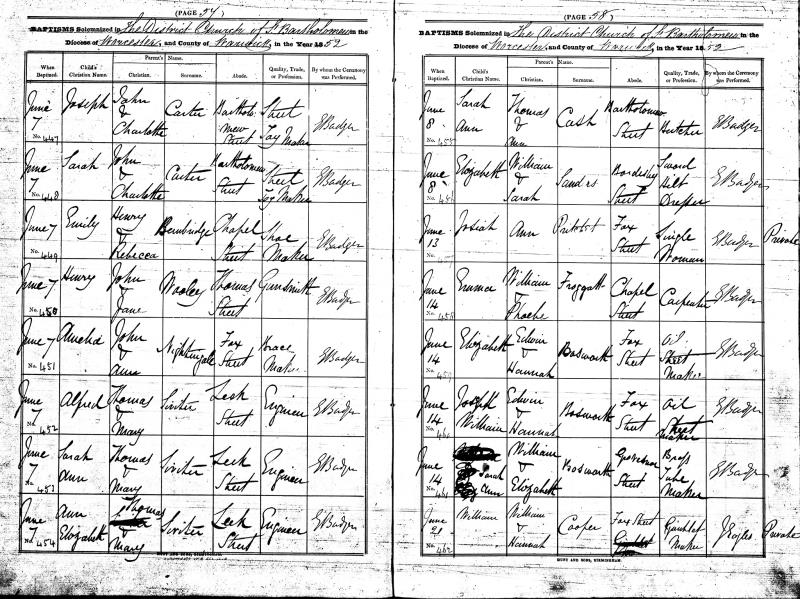 (PAGE 57)
BAPTISMS Solemnized in The District Church of St Bartholomew in the
Diocese of Worcester, and County of Warwick in the Year 1852
When Baptized. Child's Christian Name. Parent's Name. Christian. Surname. Abode. Quality, Trade, or Profession. By whom the Ceremony was Performed.
June 7 No. 447 Joseph John & Charlotte Carter Bartholomew Street Steel Toy Maker E Badger
June 7 No. 448 Sarah John & Charlotte Carter Bartholomew Street Steel Toy Maker E Badger
June 7 No. 449 Emily Henry & Rebecca Bembridge Chapel Street Shoe Maker E Badger
June 7 No. 450 Henry John & Jane Wooley Thomas Street Gunsmith E Badger
June 7 No. 451 Amelia John & Ann Nightingale Fox Street Brace Maker E Badger
June 7 No. 452 Alfred Thomas & Mary Siviter Leek Street Engineer E Badger
June 7 No. 453 Sarah Ann Thomas & Mary Siviter Leek Street Engineer E Badger
June 7 No. 454 Ann Elizabeth Thomas & Mary Siviter Leek Street Engineer E Badger
HUNT AND SONS, BIRMINGHAM.
(PAGE 58)
BAPTISMS Solemnized in The District Church of St Bartholomew in the
Diocese of Worcester, and County of Warwick in the Year 1852
When Baptized. Child's Christian Name. Parent's Name. Christian. Surname. Abode. Quality, Trade, or Profession. By whom the Ceremony was Performed.
June 8 No. 455 Sarah Ann Thomas & Ann Cash Bartholomew Street Butcher E Badger
June 8 No. Elizabeth William & Sarah Sanders Bordesley Street Sword Hilt Dresser E Badger
June 13 No. Josiah Ann Fox Street Single Woman E Badger Private
June 14 No. 458 Emma William & Phoebe Froggatt Chapel Street Carpenter E Badger
June 14 No. 459 Elizabeth Edwin & Hannah Bosworth Fox Street Oil Street Maker E Badger
June 14 No. 460 Joseph William Edwin & Hannah Bosworth Fox Street Oil Street Maker E Badger
June 14 No. 461 Sarah Ann William & Elizabeth Bosworth Grosvenor Street Brass Tube Maker E Badger
June 21 No. 462 William William & Hannah Cooper Fox Street Maker J Eyles Private
HUNT AND SONS, BIRMINGHAM.